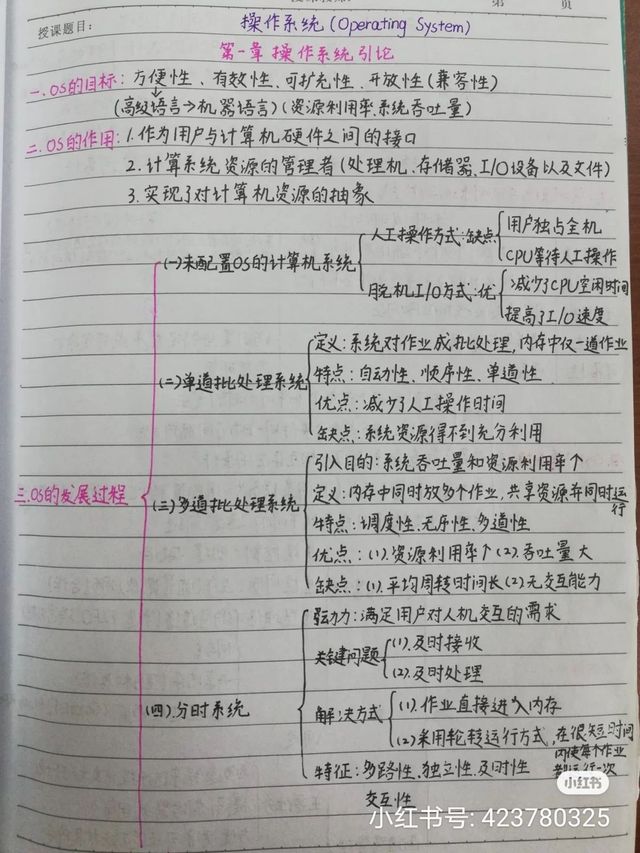 授课题目:
第
页
操作系统(Operating System)
第一章 操作系统引论
一.OS的目标:方便性、有效性、可扩充性、开放性(兼容性)
(高级语言→机器语言)(资源利用率.系统吞吐量)
二.OS的作用:1.作为用户与计算机硬件之间的接口
2.计算系统资源的管理者(处理机、存储器、I/O设备以及文件)
3.实现了对计算机资源的抽象
三.OS的发展过程
(一)未配置OS的计算机系统
人工操作方式:缺点
用户独占全机
CPU等待人工操作
脱机I/O方式:优
减少了CPU空闲时间
提高了I/O速度
(二)单道批处理系统
定义:系统对作业成批处理,内存中仅一道作业
特点:自动性、顺序性、单道性
优点:减少了人工操作时间
缺点:系统资源得不到充分利用
(三)多道批处理系统
引入目的:系统吞吐量和资源利用率↑
定义:内存中同时放多个作业,共享资源并同时运行
特点:调度性、无序性、多道性
优点:(1).资源利用率↑(2).吞吐量大
缺点:(1).平均周转时间长(2)无交互能力
(四).分时系统
动力:满足用户对人机交互的需求
关键问题
(1).及时接收
(2).及时处理
解决方式
(1).作业直接进入内存
(2)采用轮转运行方式,在很短时间
内使每个作业
都运行一次
特征:多路性、独立性、及时性
交互性
小红书
小红书号: 423780325